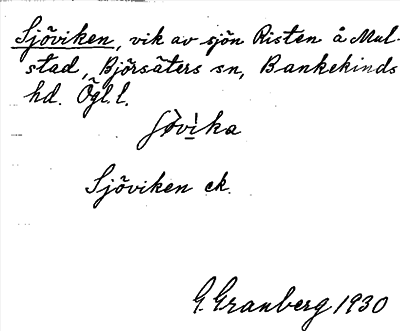 Sjöviken, vik av sjön Risten å Mul-
stad, Björsäters sn, Bankekinds
hd. Ögl. l.
Sjöviken ek.
G. Granberg 1930